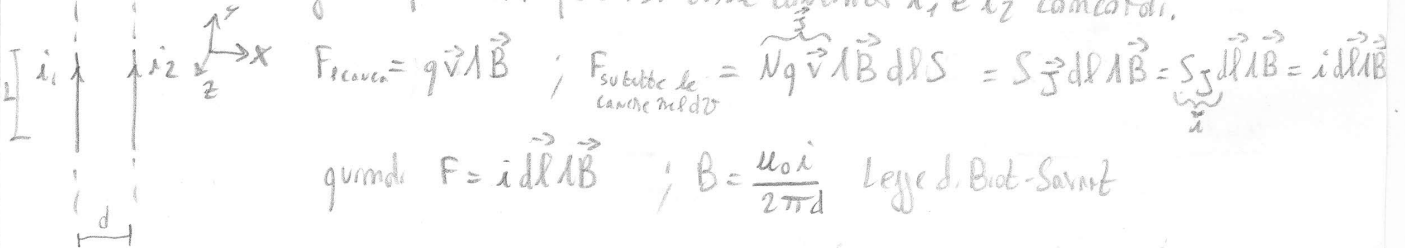 i₁ e i₂ concordi.
L i₁ i₂ y x z F = q\vec{v}Λ\vec{B} ; F su tutte le cariche nel dτ = Nq\vec{v}Λ\vec{B} dl S = S \vec{J} dl Λ\vec{B} = S J \vec{dl}Λ\vec{B} = i \vec{dl}Λ\vec{B}
\vec{J} i
quindi F = i \vec{dl}Λ\vec{B} ; B = μ₀i / 2πd Legge di Biot-Savart
d